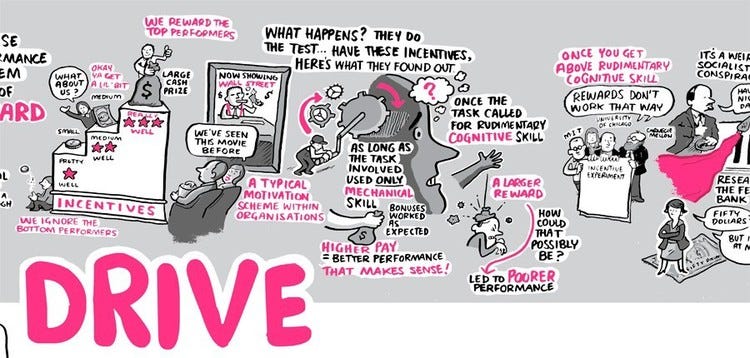 SE
RMANCE
EM
OF
ARD
OL
GH
WE REWARD THE
TOP PERFORMERS
WHAT
ABOUT
US ?
OKAY
YA GET
A LIL' BIT
MEDIUM
LARGE
CASH
PRIZE
SMALL
REALLY
WELL
MEDIUM
WELL
PRETTY
WELL
INCENTIVES
WE IGNORE THE
BOTTOM PERFORMERS
NOW SHOWING
WALL STREET
WE'VE SEEN
THIS MOVIE
BEFORE
A TYPICAL
MOTIVATION
SCHEME WITHIN
ORGANISATIONS
WHAT HAPPENS? THEY DO
THE TEST... HAVE THESE INCENTIVES,
HERE'S WHAT THEY FOUND OUT
?
AS LONG AS
THE TASK
INVOLVED
USED ONLY
MECHANICAL
SKILL
BONUSES
WORKED
AS
EXPECTED
HIGHER PAY
= BETTER PERFORMANCE
THAT MAKES SENSE!
ONCE THE
TASK CALLED
FOR RUDIMENTARY
COGNITIVE SKILL
A LARGER
REWARD
HOW
COULD
THAT
POSSIBLY
BE ?
LED TO POORER
PERFORMANCE
ONCE YOU GET
ABOVE RUDIMENTARY
COGNITIVE SKILL
REWARDS DON'T
WORK THAT WAY
MIT
UNIVERSITY
OF CHICAGO
CARNEGIE
MELLOW
INCENTIVE
EXPERIMENT
IT'S A WEI
SOCIALIST
CONSPIRA
HAV
NIC
DA
RESEA
THE FE
BANK
FIFTY
DOLLARS
BUT I
AT M
DRIVE